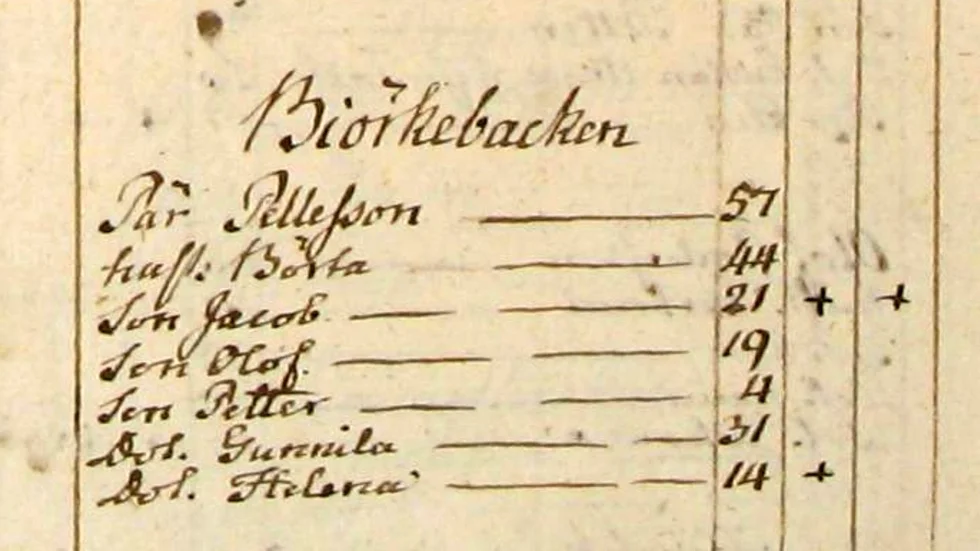 Biörkebacken
Pär Pellesson 57
hust: Börta 44
Son Jacob 21 + +
Son Olof. 19
Son Petter 4
Dot. Gunnila 31
Dot. Helena 14 +